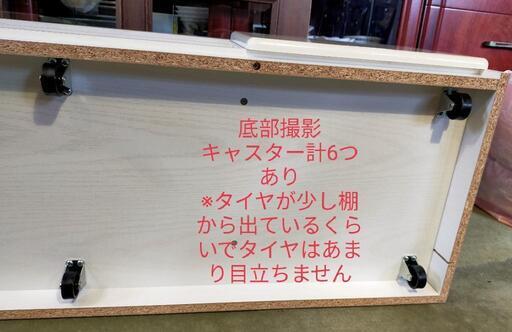 底部撮影
キャスター計6つ
あり
※タイヤが少し棚
から出ているくら
いでタイヤはあま
り目立ちません